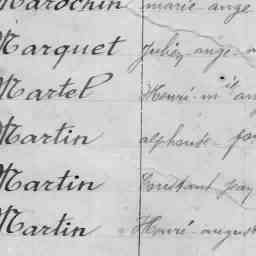 Marochin marie ange
Marquet Julien ange
Martel Henri-m ie an
Martin alphonse-jo
Martin Constant jean
Martin Henri-august